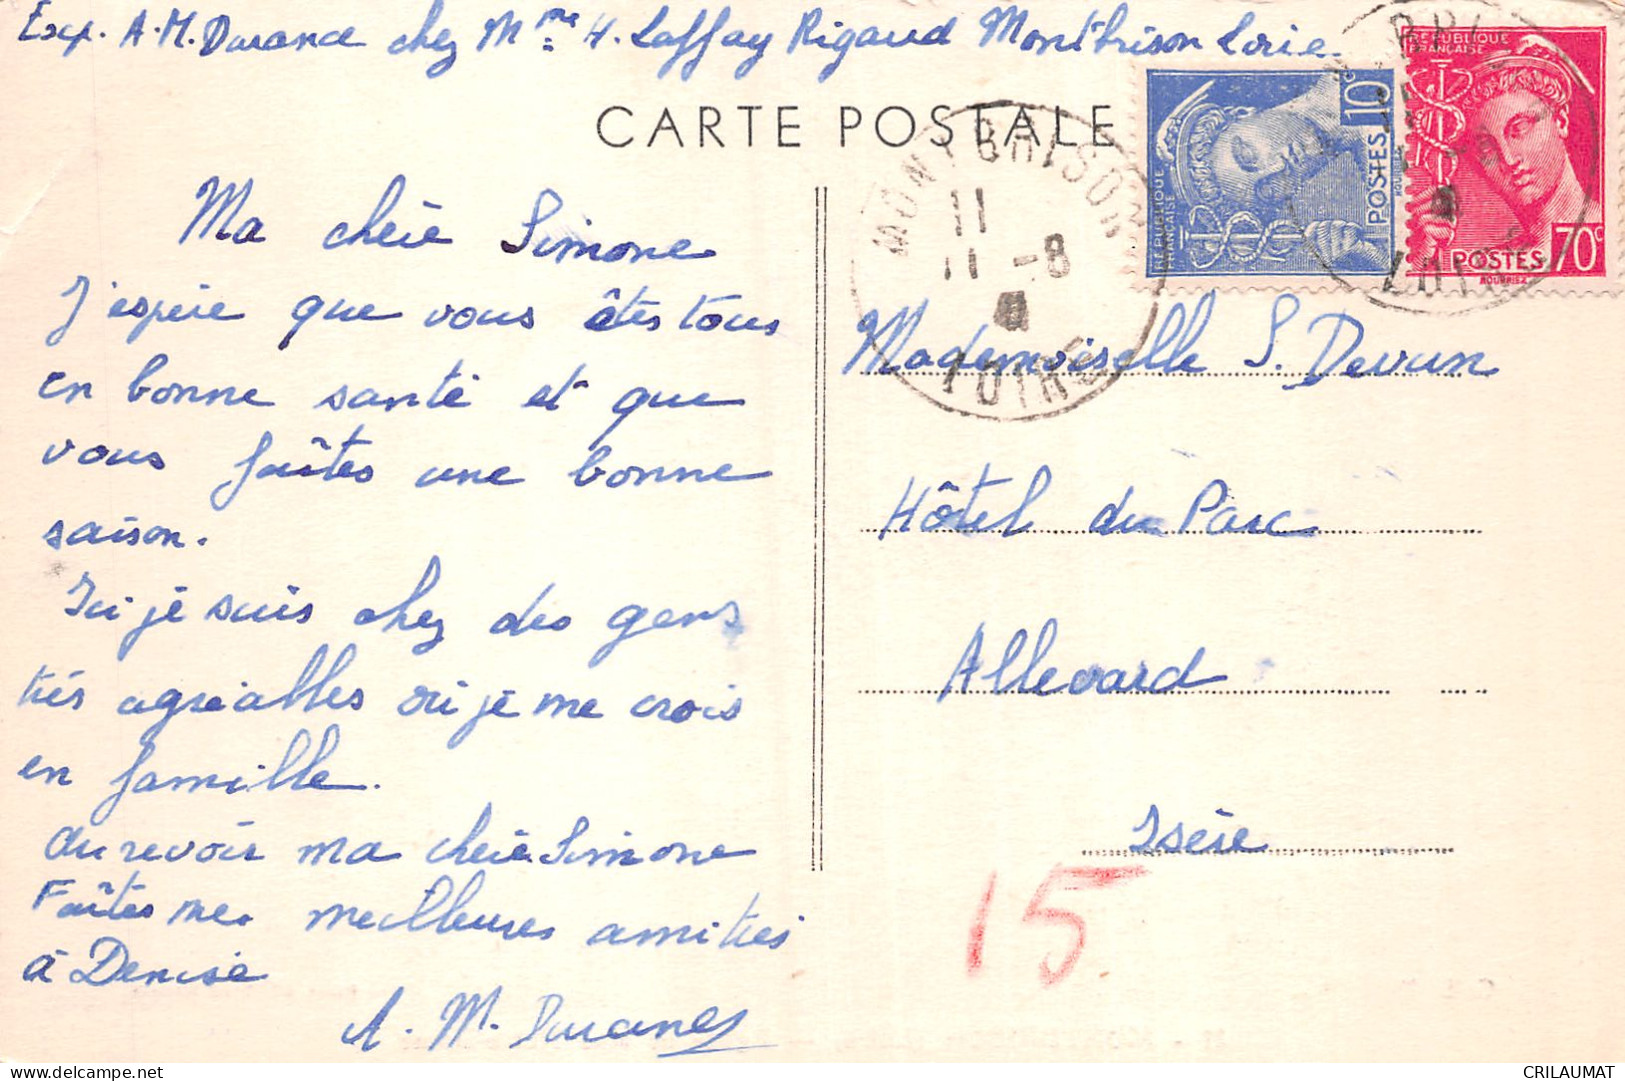 Exp. A.M. Durand chez Mme H. Laffay Rigaud Montbrison Loire
CARTE POSTALE
RÉPUBLIQUE
FRANÇAISE
10c
POSTES
RÉPUBLIQUE
FRANÇAISE
POSTES 70c
MONTBRISON
11
11 -8
LOIRE
LOIRE
Ma chère Simone
J'espère que vous êtes tous
en bonne santé et que
vous faîtes une bonne
saison.
Ici je suis chez des gens
très agréables où je me crois
en famille.
Au revoir ma chère Simone
Faîtes mes meilleures amitiés
à Denise
A. M. Durand
Mademoiselle S. Devun
Hôtel du Parc
Allevard
Isère
15
CRILAUMAT